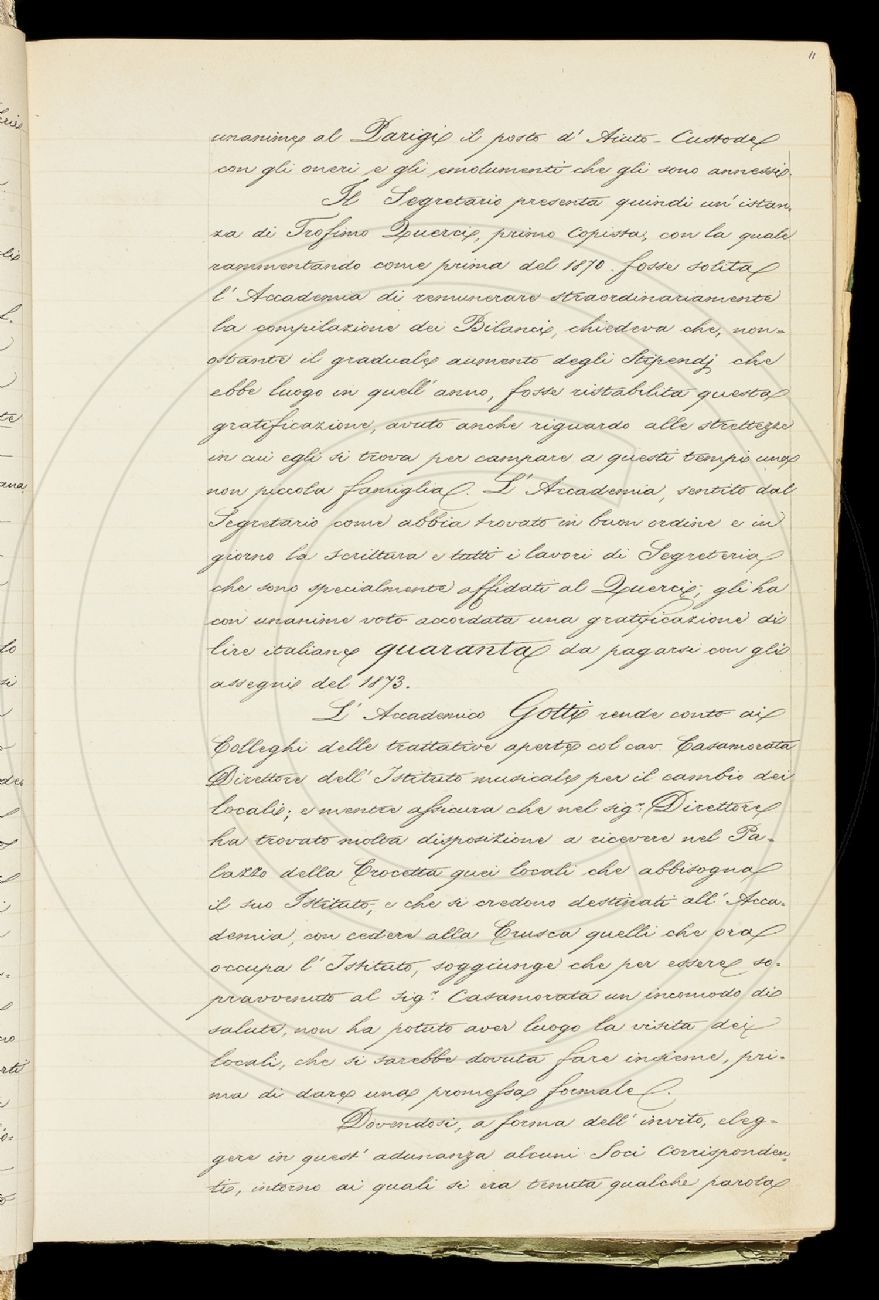 11
unanime al Parigi il posto d'Aiuto-Custode
con gli oneri e gli emolumenti che gli sono annessi.
Il Segretario presenta quindi un'istan-
za di Trofimo Querci, primo Copista, con la quale
rammentando come prima del 1870. fosse solita
l'Accademia di remunerare straordinariamente
la compilazione dei Bilanci, chiedeva che, non-
ostante il graduale aumento degli Stipendj che
ebbe luogo in quell'anno, fosse ristabilita questa
gratificazione, avuto anche riguardo alle strettezze
in cui egli si trova per campare a questi tempi una
non piccola famiglia. L'Accademia, sentito dal
Segretario come abbia trovato in buon ordine e in
giorno la scrittura e tutti i lavori di Segreteria
che sono specialmente affidati al Querci; gli ha
con unanime voto accordata una gratificazione di
lire italiane quaranta da pagarsi con gli
assegni del 1873.
L'Accademico Gotti rende conto ai
Colleghi delle trattative aperte col cav. Casamorata
Direttore dell'Istituto musicale per il cambio dei
locali; e mentre assicura che nel sigr. Direttore
ha trovato molta disposizione a ricevere nel Pa-
lazzo della Crocetta quei locali che abbisogna
il suo Istituto, e che si credono destinati all'Acca-
demia, con cedere alla Crusca quelli che ora
occupa l'Istituto, soggiunge che per essere so-
pravvenuto al sigr. Casamorata un incomodo di
salute, non ha potuto aver luogo la visita dei
locali, che si sarebbe dovuta fare insieme, pri-
ma di dare una promessa formale.
Dovendosi, a forma dell'invito, eleg-
gere in quest'adunanza alcuni Soci Corrisponden-
ti, intorno ai quali si era tenuta qualche parola